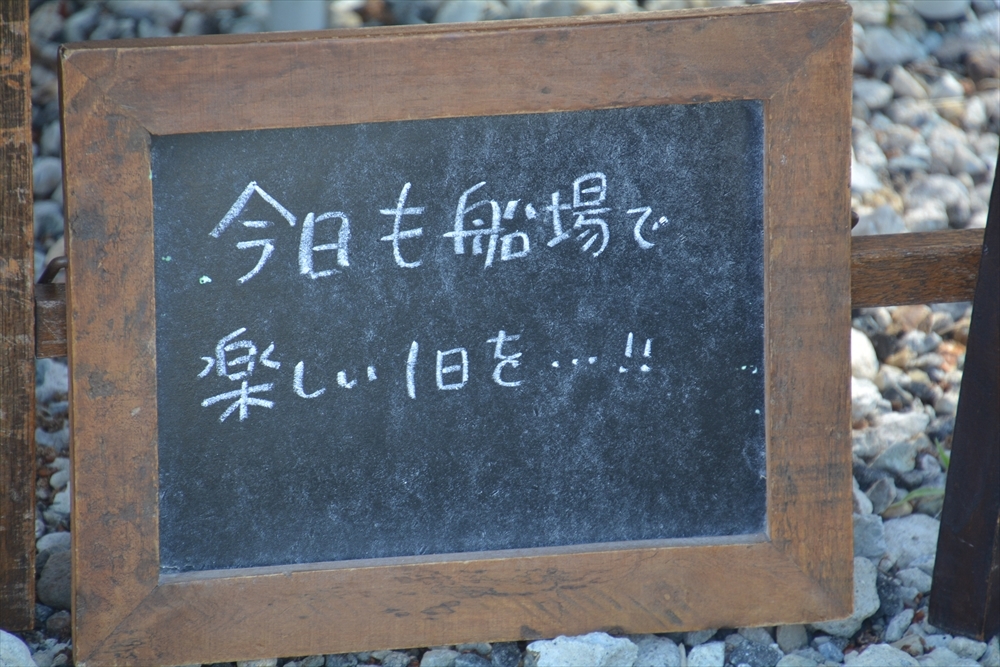 今日も船場で
楽しい1日を…!!